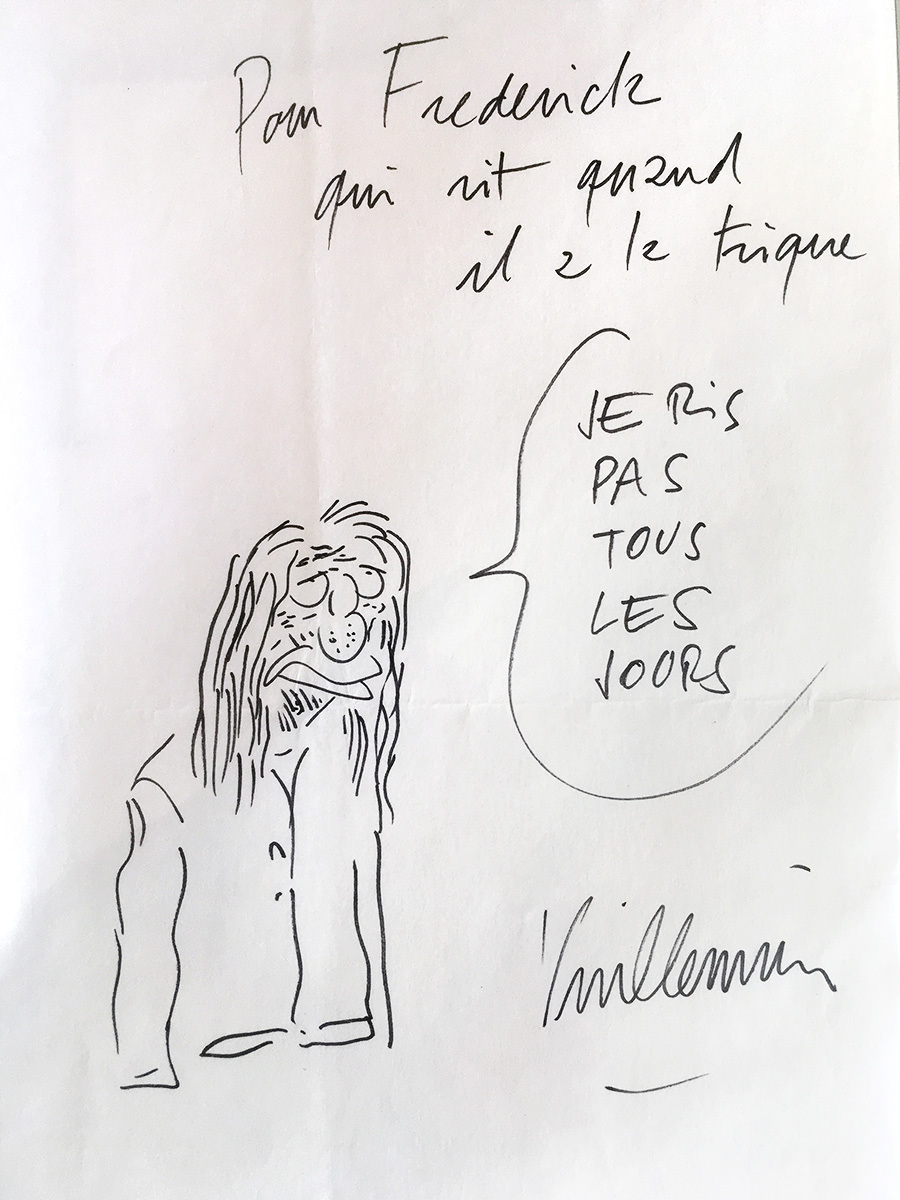 Pour Frederick
qui rit quand
il a la trique
JE RIS
PAS
TOUS
LES
JOURS
Vuillemin